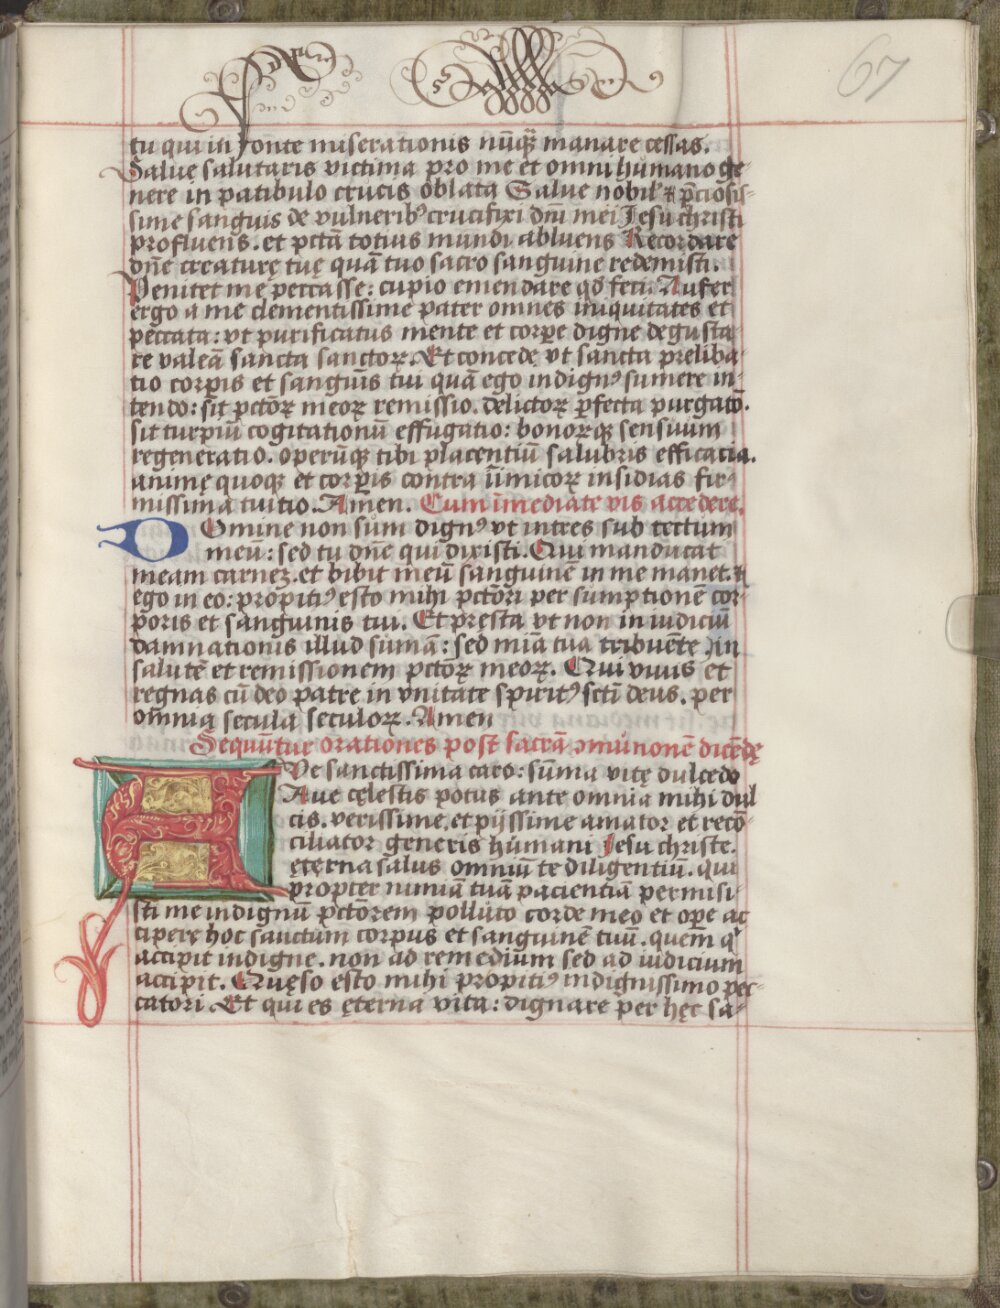 67
tu qui in fonte miserationis nūq̄ȝ manare cessas.
Salue salutaris victima pro me et omni humano ge
nere in patibulo crucis oblata Salue nobil' ⁊ p̄ciosis-
sime sanguis de vulneribꝰ crucifixi dn̄i mei Jesu christi
profluens. et pctā totius mundi abluens Recordare
dn̄e creaturę tuę quā tuo sacro sanguine redemisti.
Penitet me peccasse: cupio emendare qd̄ feci. Aufer
ergo a me clementissime pater omnes iniquitates et
peccata: vt purificatus mente et corpe digne degusta-
re valeā sancta sanctoꝝ. Et concede vt sancta preliba-
tio corpis et sanguīs tui quā ego indignꝰ sumere in-
tendo: sit pctōꝝ meoꝝ remissio. delictoꝝ ꝑfecta purgatō.
sit turpiū cogitationū effugatio: bonoꝝqȝ sensuum
regeneratio. operūqȝ tibi placentiū salubris efficacia.
animę quoqȝ et corpis contra īimicoꝝ insidias fir-
missima tuitio. Amen. Cum īmediate vis accedere.
Domine non sum dignꝰ vt intres sub tectum
meū: sed tu dn̄e qui dixisti. Qui manducat
meam carneȝ. et bibit meū sanguinē in me manet. ⁊
ego in eo: propitiꝰ esto mihi pctōri per sumptionē cor-
poris et sanguinis tui. Et presta vt non in iudiciū
damnationis illud sumā: sed mīa tua tribuente in
salutē et remissionem pctōꝝ meoꝝ. Qui viuis et
regnas cū deo patre in vnitate spiritꝰ sctī deus. per
omnia secula seculoꝝ. Amen
Sequūtur orationes post sacrā ꝯmunionē dicēdę
AVe sanctissima caro: sūma vitę dulcedo
Aue cęlestis potus ante omnia mihi dul
cis. verissime. et pijssime amator et recō-
ciliator generis humani Jesu christe.
ęterna salus omniū te diligentiū. qui
propter nimiā tuā pacientiā permisi-
sti me indignū pctōrem polluto corde meo et ope ac
cipere hoc sanctum corpus et sanguinē tuū. quem q'
accipit indigne. non ad remedium sed ad iudicium
accipit. Quęso esto mihi propitiꝰ indignissimo pec-
catori. Et qui es ęterna vita: dignare per hęc sa-